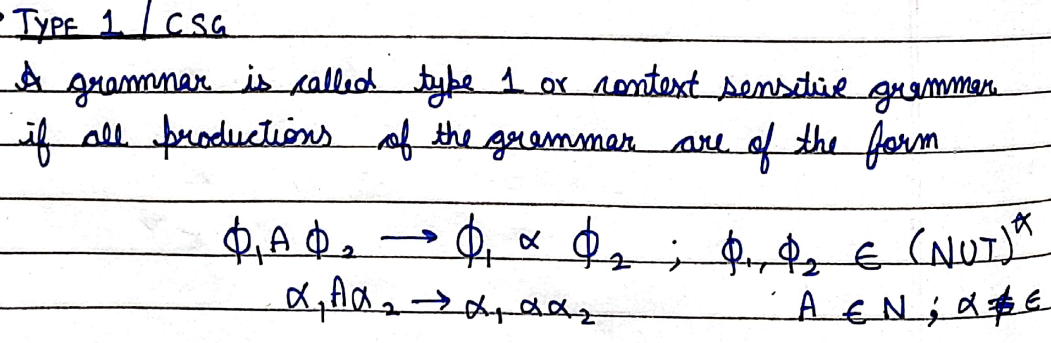 • TYPE 1 / CSG
A grammar is called type 1 or context sensitive grammar
if all productions of the grammar are of the form
ϕ₁ A ϕ₂ → ϕ₁ α ϕ₂ ; ϕ₁, ϕ₂ ∈ (NUT)*
α₁Aα₂ → α₁ αα₂ A ∈ N ; α ≠ ϵ